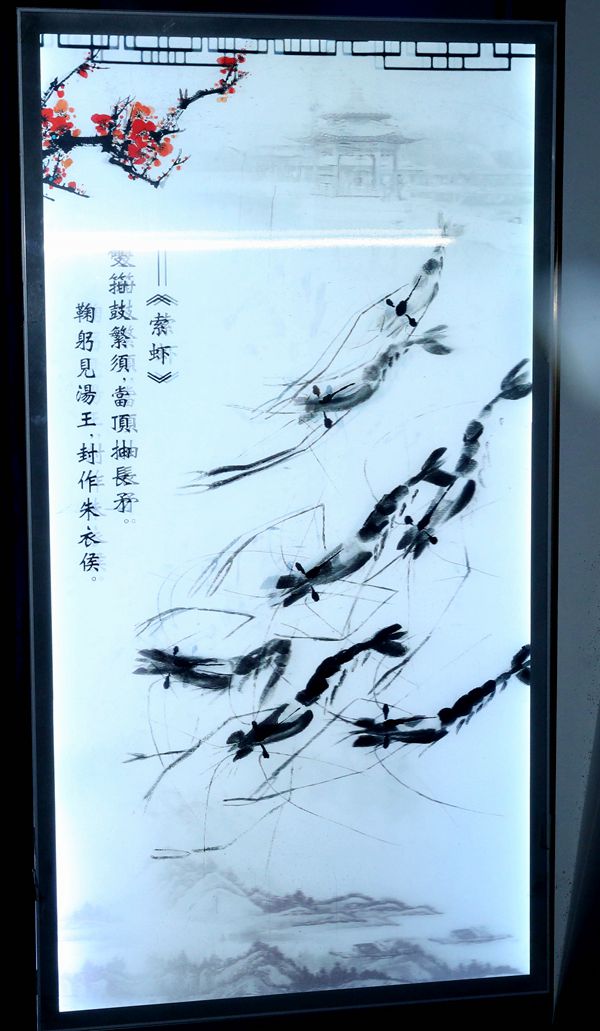 ——《索虾》
雙箝鼓繁須,當頂抽長矛。
鞠躬見湯王,封作朱衣侯。